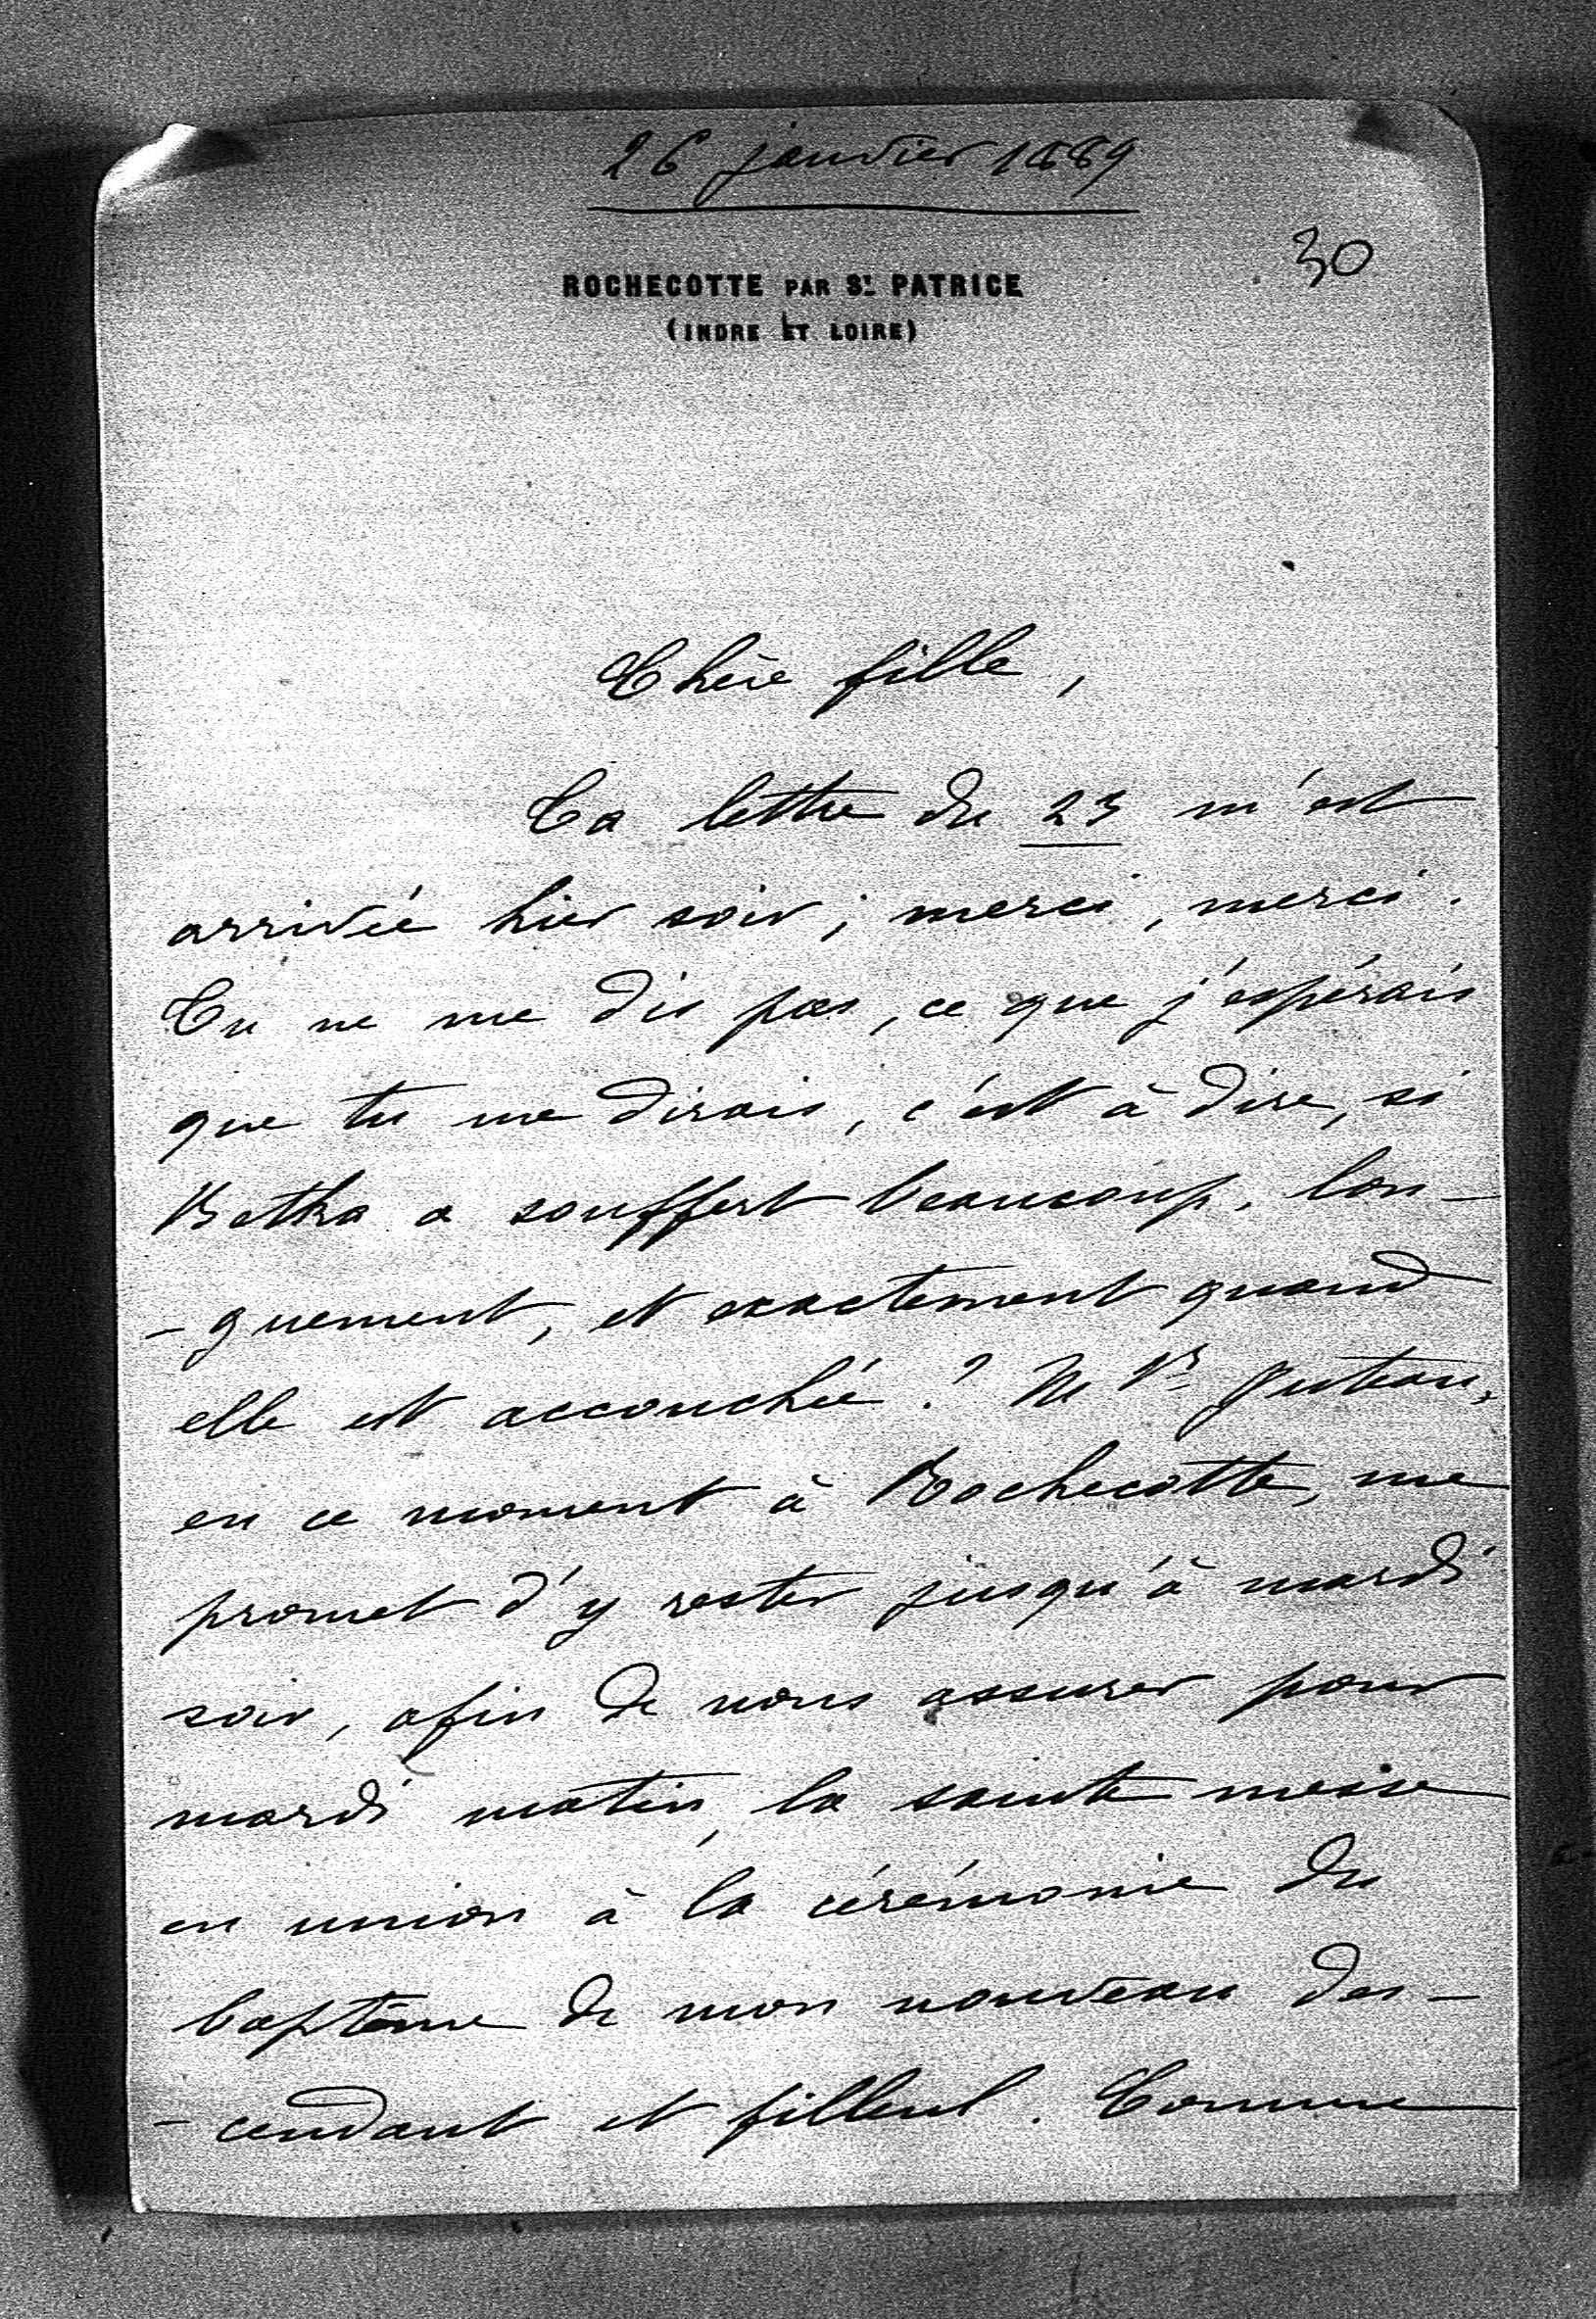 26 janvier 1889
30
ROCHECOTTE PAR ST PATRICE
(INDRE ET LOIRE)
Chère fille,
Ta lettre du 23 m'est
arrivée hier soir; merci, merci.
Tu ne me dis pas, ce que j'espérais
que tu me dirais, c'est à dire, si
Betka a souffert beaucoup, lon-
-guement, et exactement quand
elle est accouchée? Mgr Juteau,
en ce moment à Rochecotte, me
promet d'y rester jusqu'à mardi
soir, afin de nous assurer pour
mardi matin, la sainte messe
en union à la cérémonie du
baptême de mon nouveau des-
-cendant et filleul. Comme